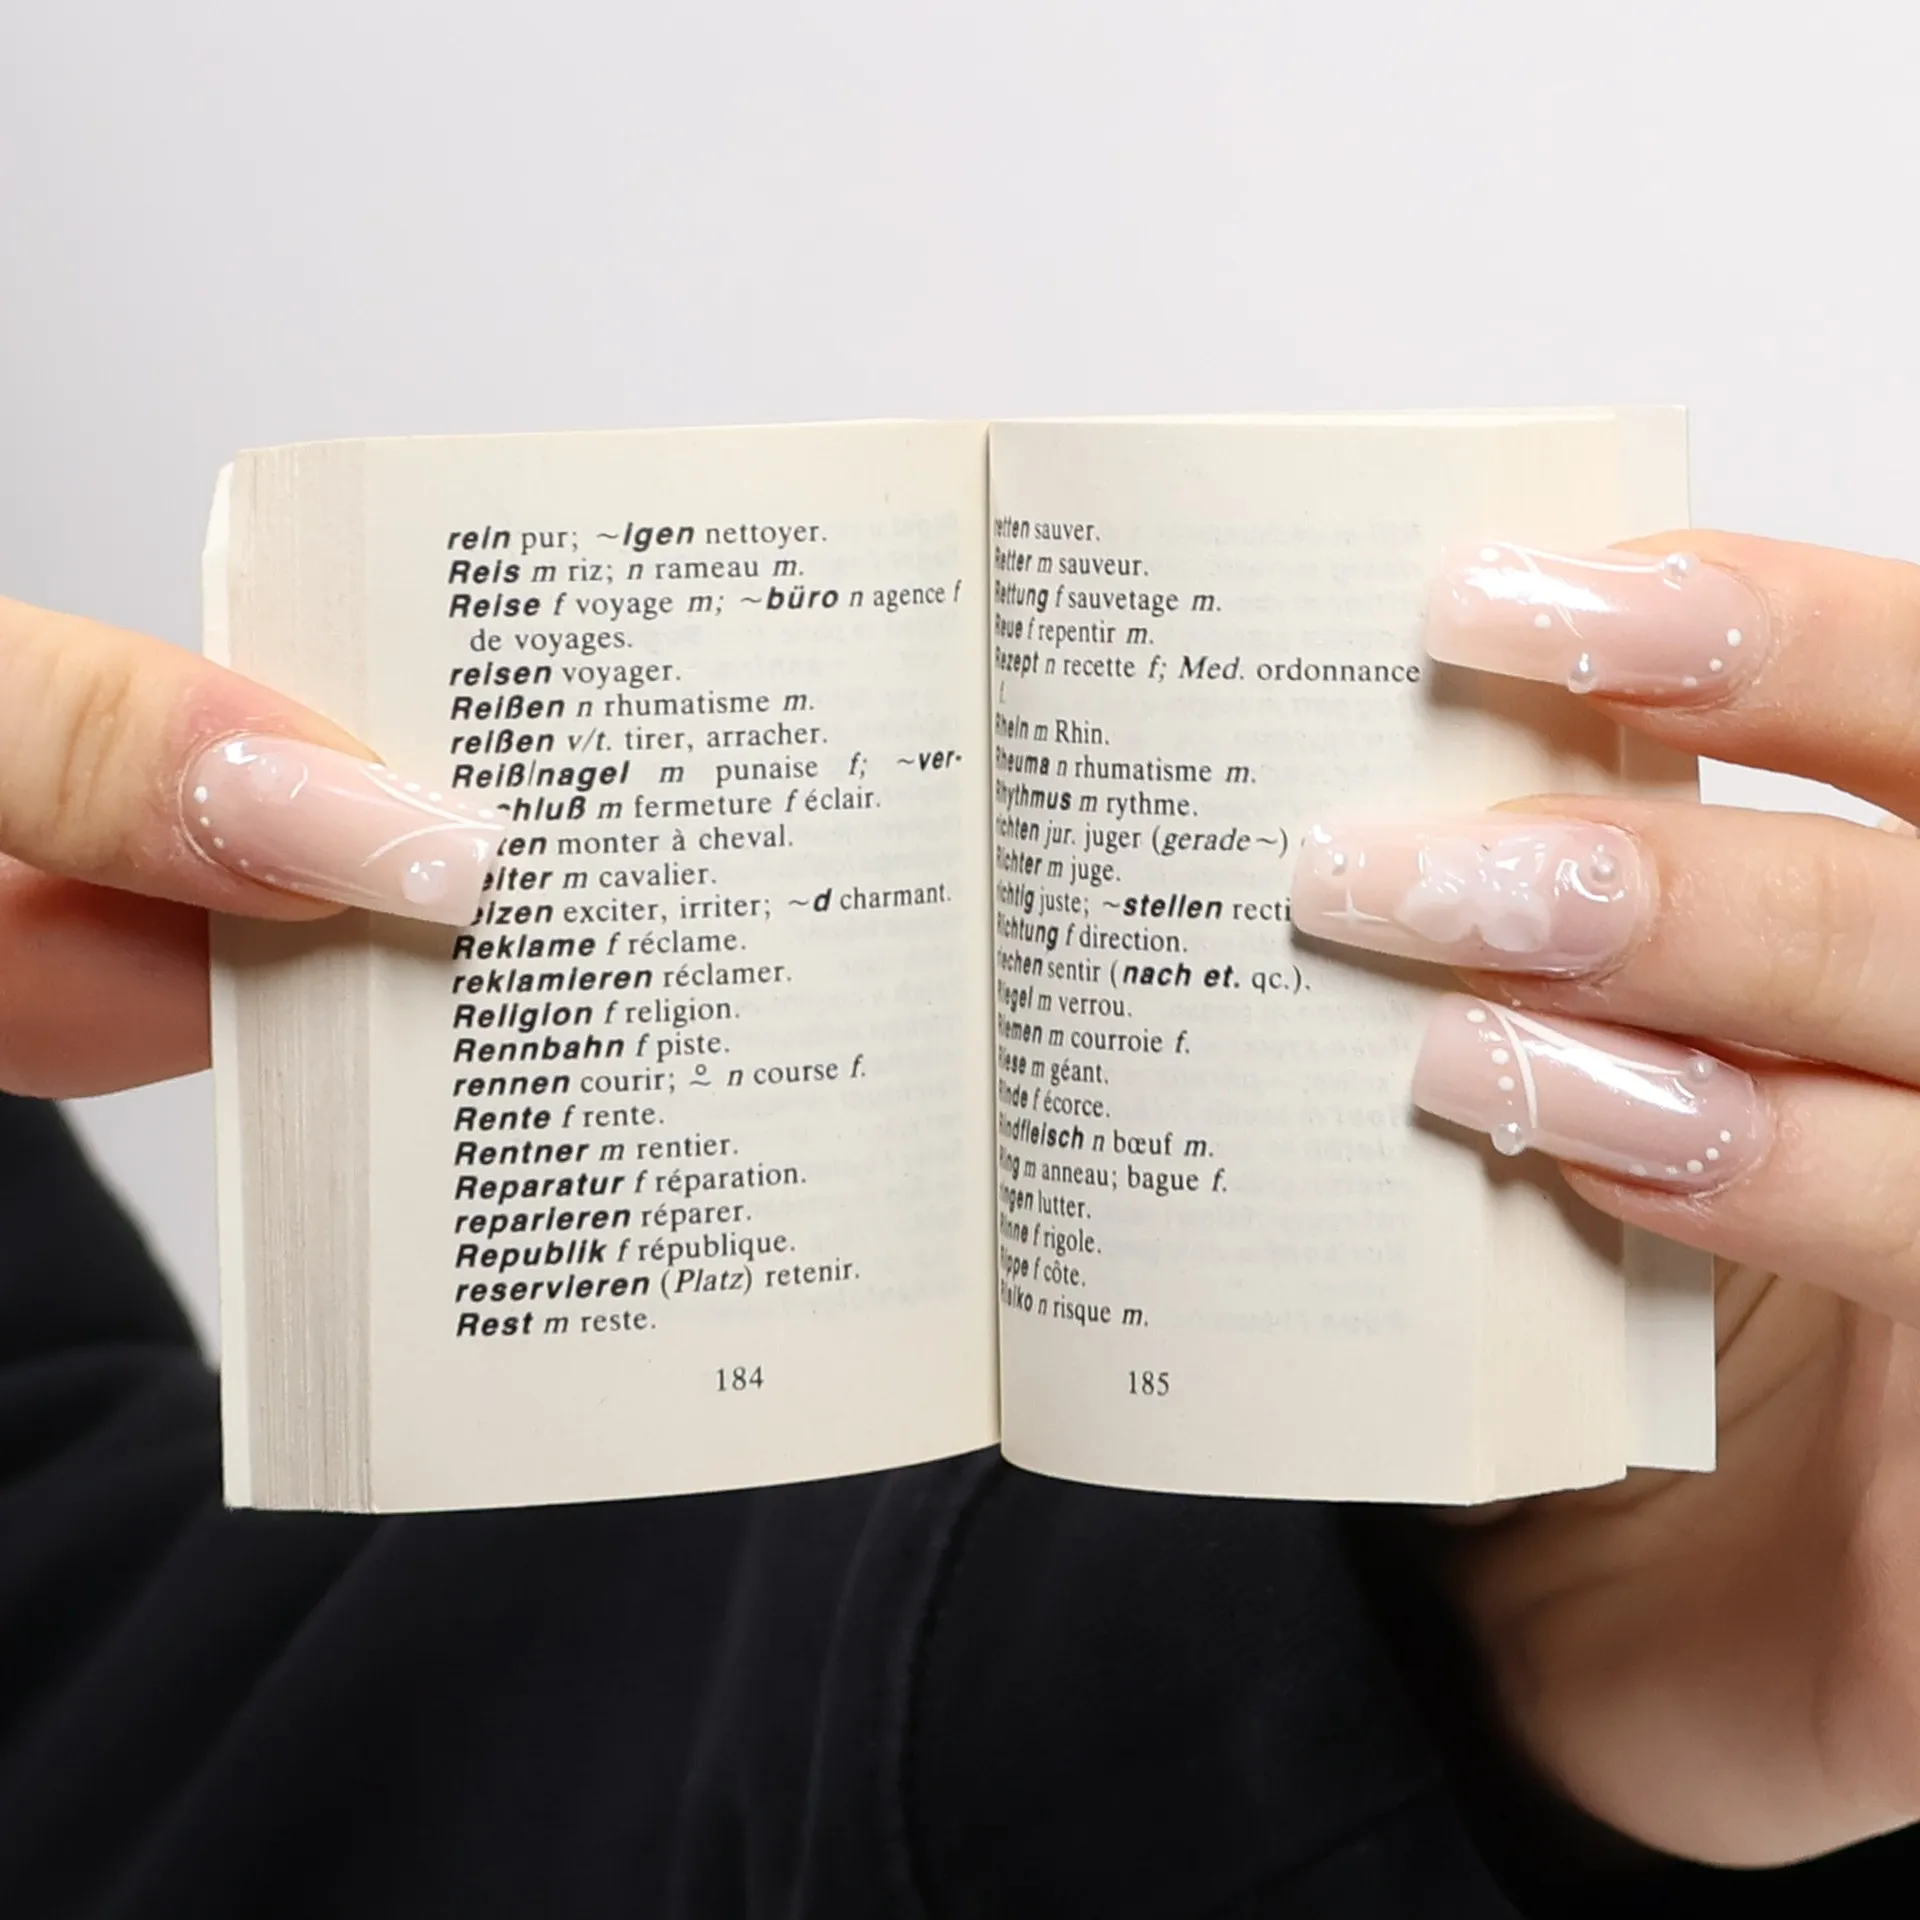 rein pur; ~igen nettoyer.
Reis m riz; n rameau m.
Reise f voyage m; ~büro n agence f
de voyages.
reisen voyager.
Reißen n rhumatisme m.
reißen v/t. tirer, arracher.
Reiß|nagel m punaise f; ~ver-
m fermeture f éclair.
monter à cheval.
m cavalier.
exciter, irriter; ~d charmant.
Reklame f réclame.
reklamieren réclamer.
Religion f religion.
Rennbahn f piste.
rennen courir; ⩬ n course f.
Rente f rente.
Rentner m rentier.
Reparatur f réparation.
reparieren réparer.
Republik f république.
reservieren (Platz) retenir.
Rest m reste.
184
retten sauver.
Retter m sauveur.
Rettung f sauvetage m.
Reue f repentir m.
Rezept n recette f; Med. ordonnance
f.
Rhein m Rhin.
Rheuma n rhumatisme m.
Rhythmus m rythme.
richten jur. juger (gerade~)
Richter m juge.
richtig juste; ~stellen
Richtung f direction.
riechen sentir (nach et. qc.).
Riegel m verrou.
Riemen m courroie f.
Riese m géant.
Rinde f écorce.
Rindfleisch n bœuf m.
Ring m anneau; bague f.
ringen lutter.
Rinne f rigole.
Rippe f côte.
Risiko n risque m.
185